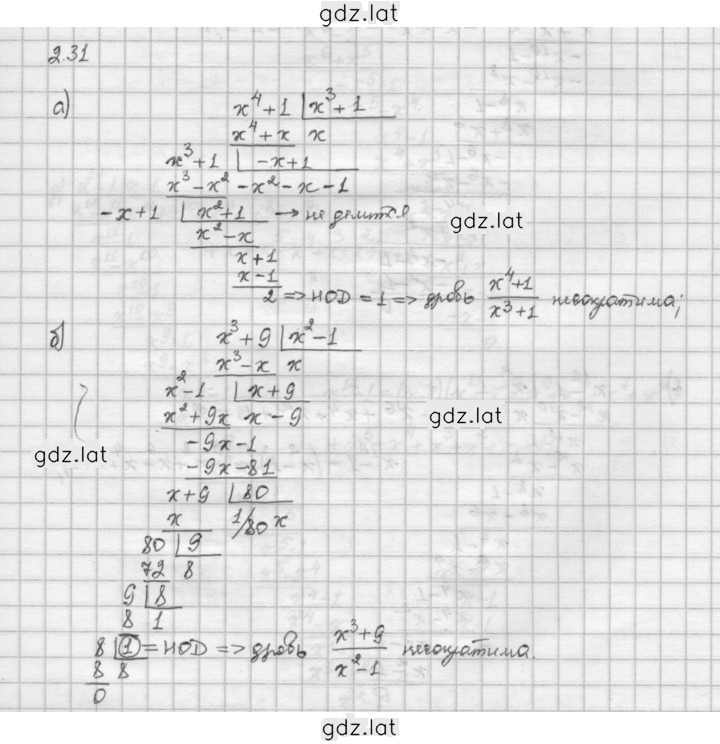 gdz.lat
2.31
а)
x⁴+1 | x³+1
x⁴+x x
x³+1 | -x+1
x³-x² -x²-x-1
-x+1 | x²+1 → не делится
gdz.lat
x²-x
x+1
x-1
2 => НОД = 1 => дробь x⁴+1 / x³+1 несократима;
б)
x³+9 | x²-1
x³-x x
x²-1 | x+9
x²+9x x-9
gdz.lat
-9x-1
gdz.lat
-9x-81
x+9 | 80
x 1/80 x
80 | 9
72 8
9 | 8
8 1
8 | 1 = НОД => дробь x³+9 / x²-1 несократима.
8 8
0
gdz.lat